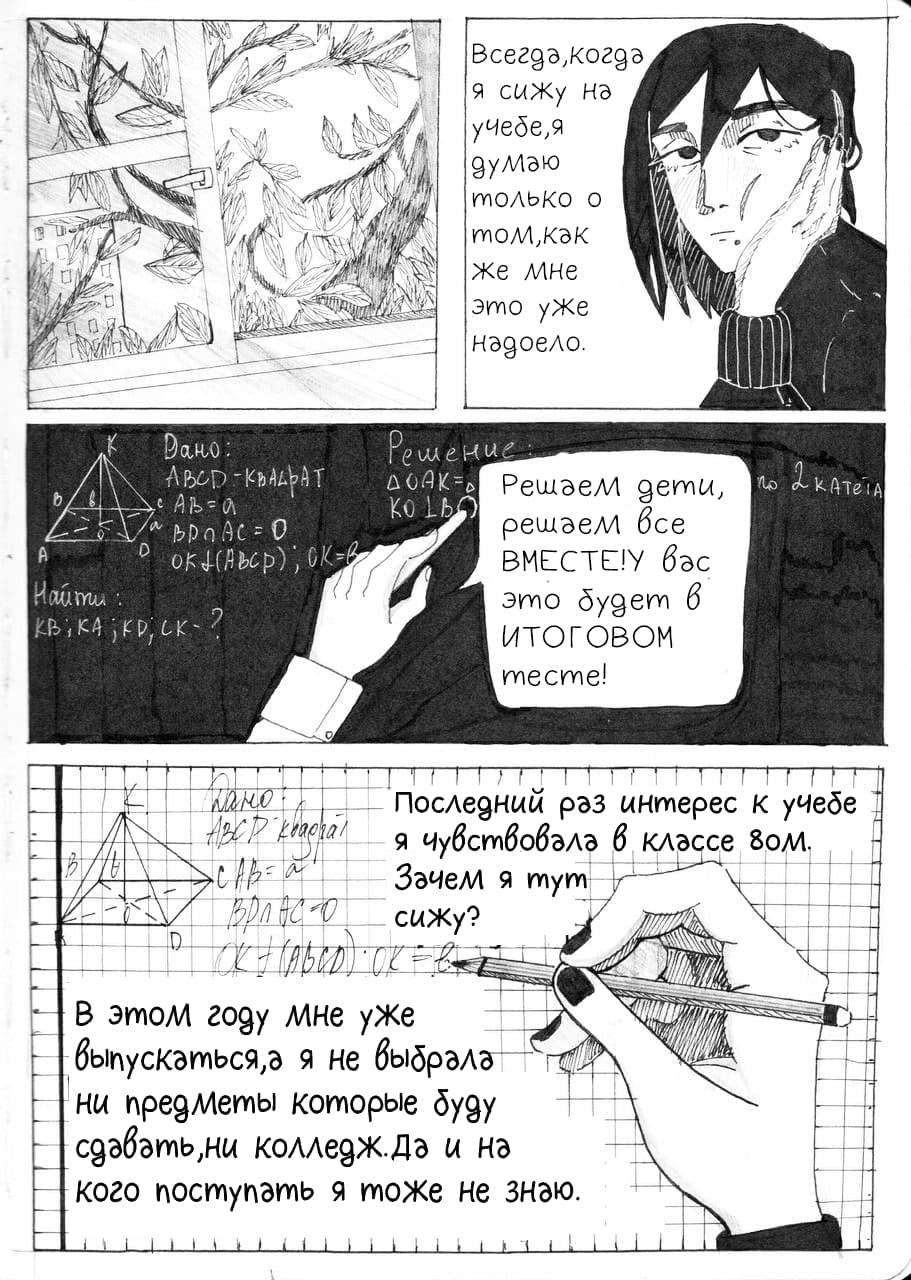 Всегда,когда
я сижу на
учебе,я
думаю
только о
том,как
же мне
это уже
надоело.
K
Дано:
ABCD-квадрат
AB=a
BD∩AC=O
OK⊥(ABCD); OK=в
B
в
C
a
A
O
D
Найти:
KB;KA;KD;CK-?
Решение:
ΔOAK=
KO⊥B
по 2 катета
Решаем дети,
решаем все
ВМЕСТЕ!У вас
это будет в
ИТОГОВОМ
тесте!
K
Дано:
ABCD-квадрат
B
в
C
AB=a
O
BD∩AC=O
D
OK⊥(ABCD):OK=в
Последний раз интерес к учебе
я чувствовала в классе 8ом.
Зачем я тут
сижу?
В этом году мне уже
выпускаться,а я не выбрала
ни предметы которые буду
сдавать,ни колледж.Да и на
кого поступать я тоже не знаю.